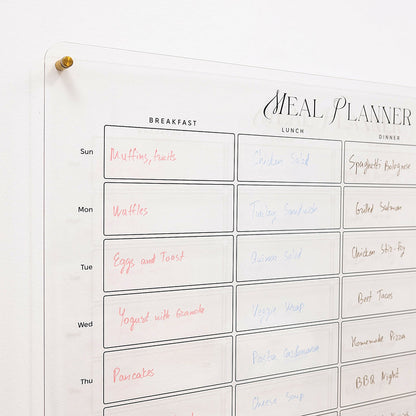 MEAL PLANNER
BREAKFAST LUNCH DINNER
Sun Muffins, fruits Chicken Salad Spaghetti Bolognese
Mon Waffles Turkey Sandwich Grilled Salmon
Tue Eggs and Toast Quinoa Salad Chicken Stir-Fry
Wed Yogurt with Granola Veggie Wrap Beef Tacos
Thu Pancakes Pasta Carbonara Homemade Pizza
Cheese Soup BBQ Night